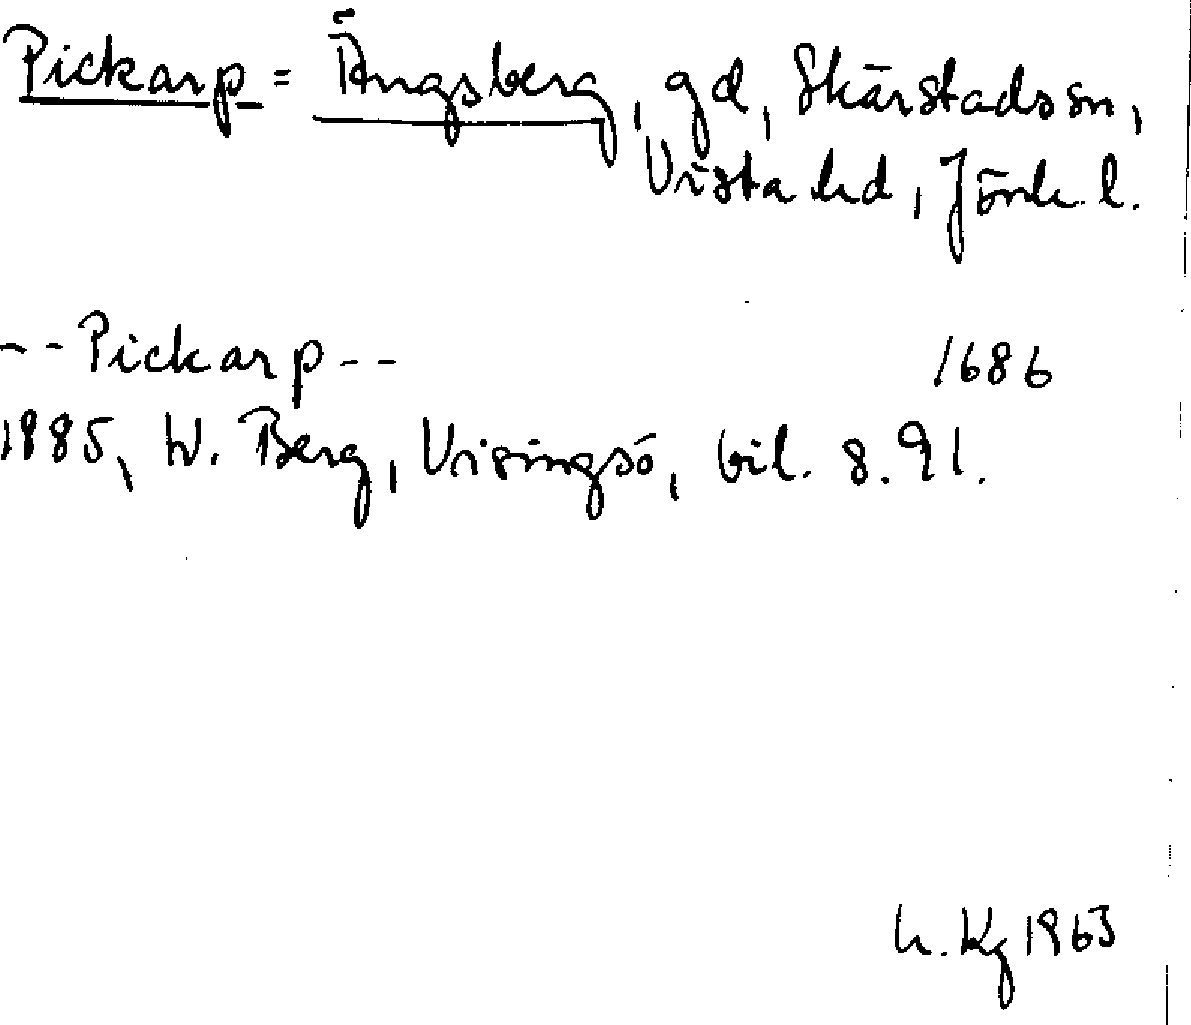 Pickarp = Ängsberg, gd, Skärstads sn,
Vista hd, Jönk. l.
-- Pickarp -- 1686
1885, W. Berg, Visingsö, bil. s. 91.
h. Kg 1963